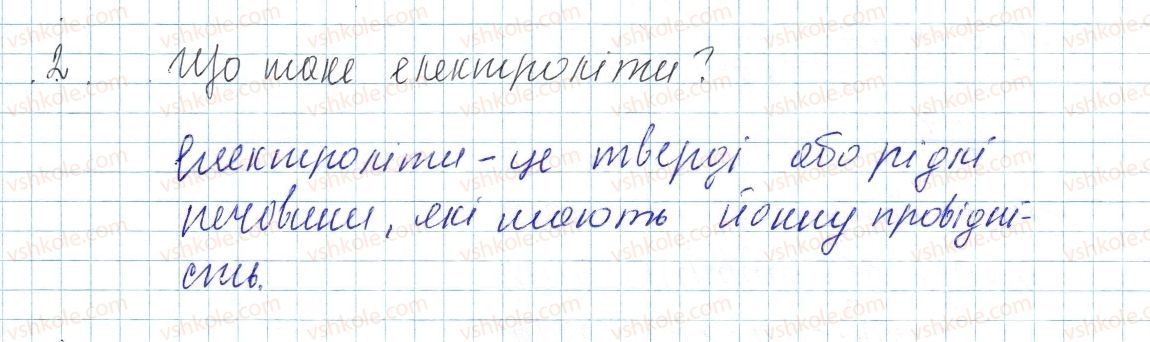 2. Що таке електроліти?
електроліти - це тверді або рідкі
речовини, які мають йонну провідні-
сть.